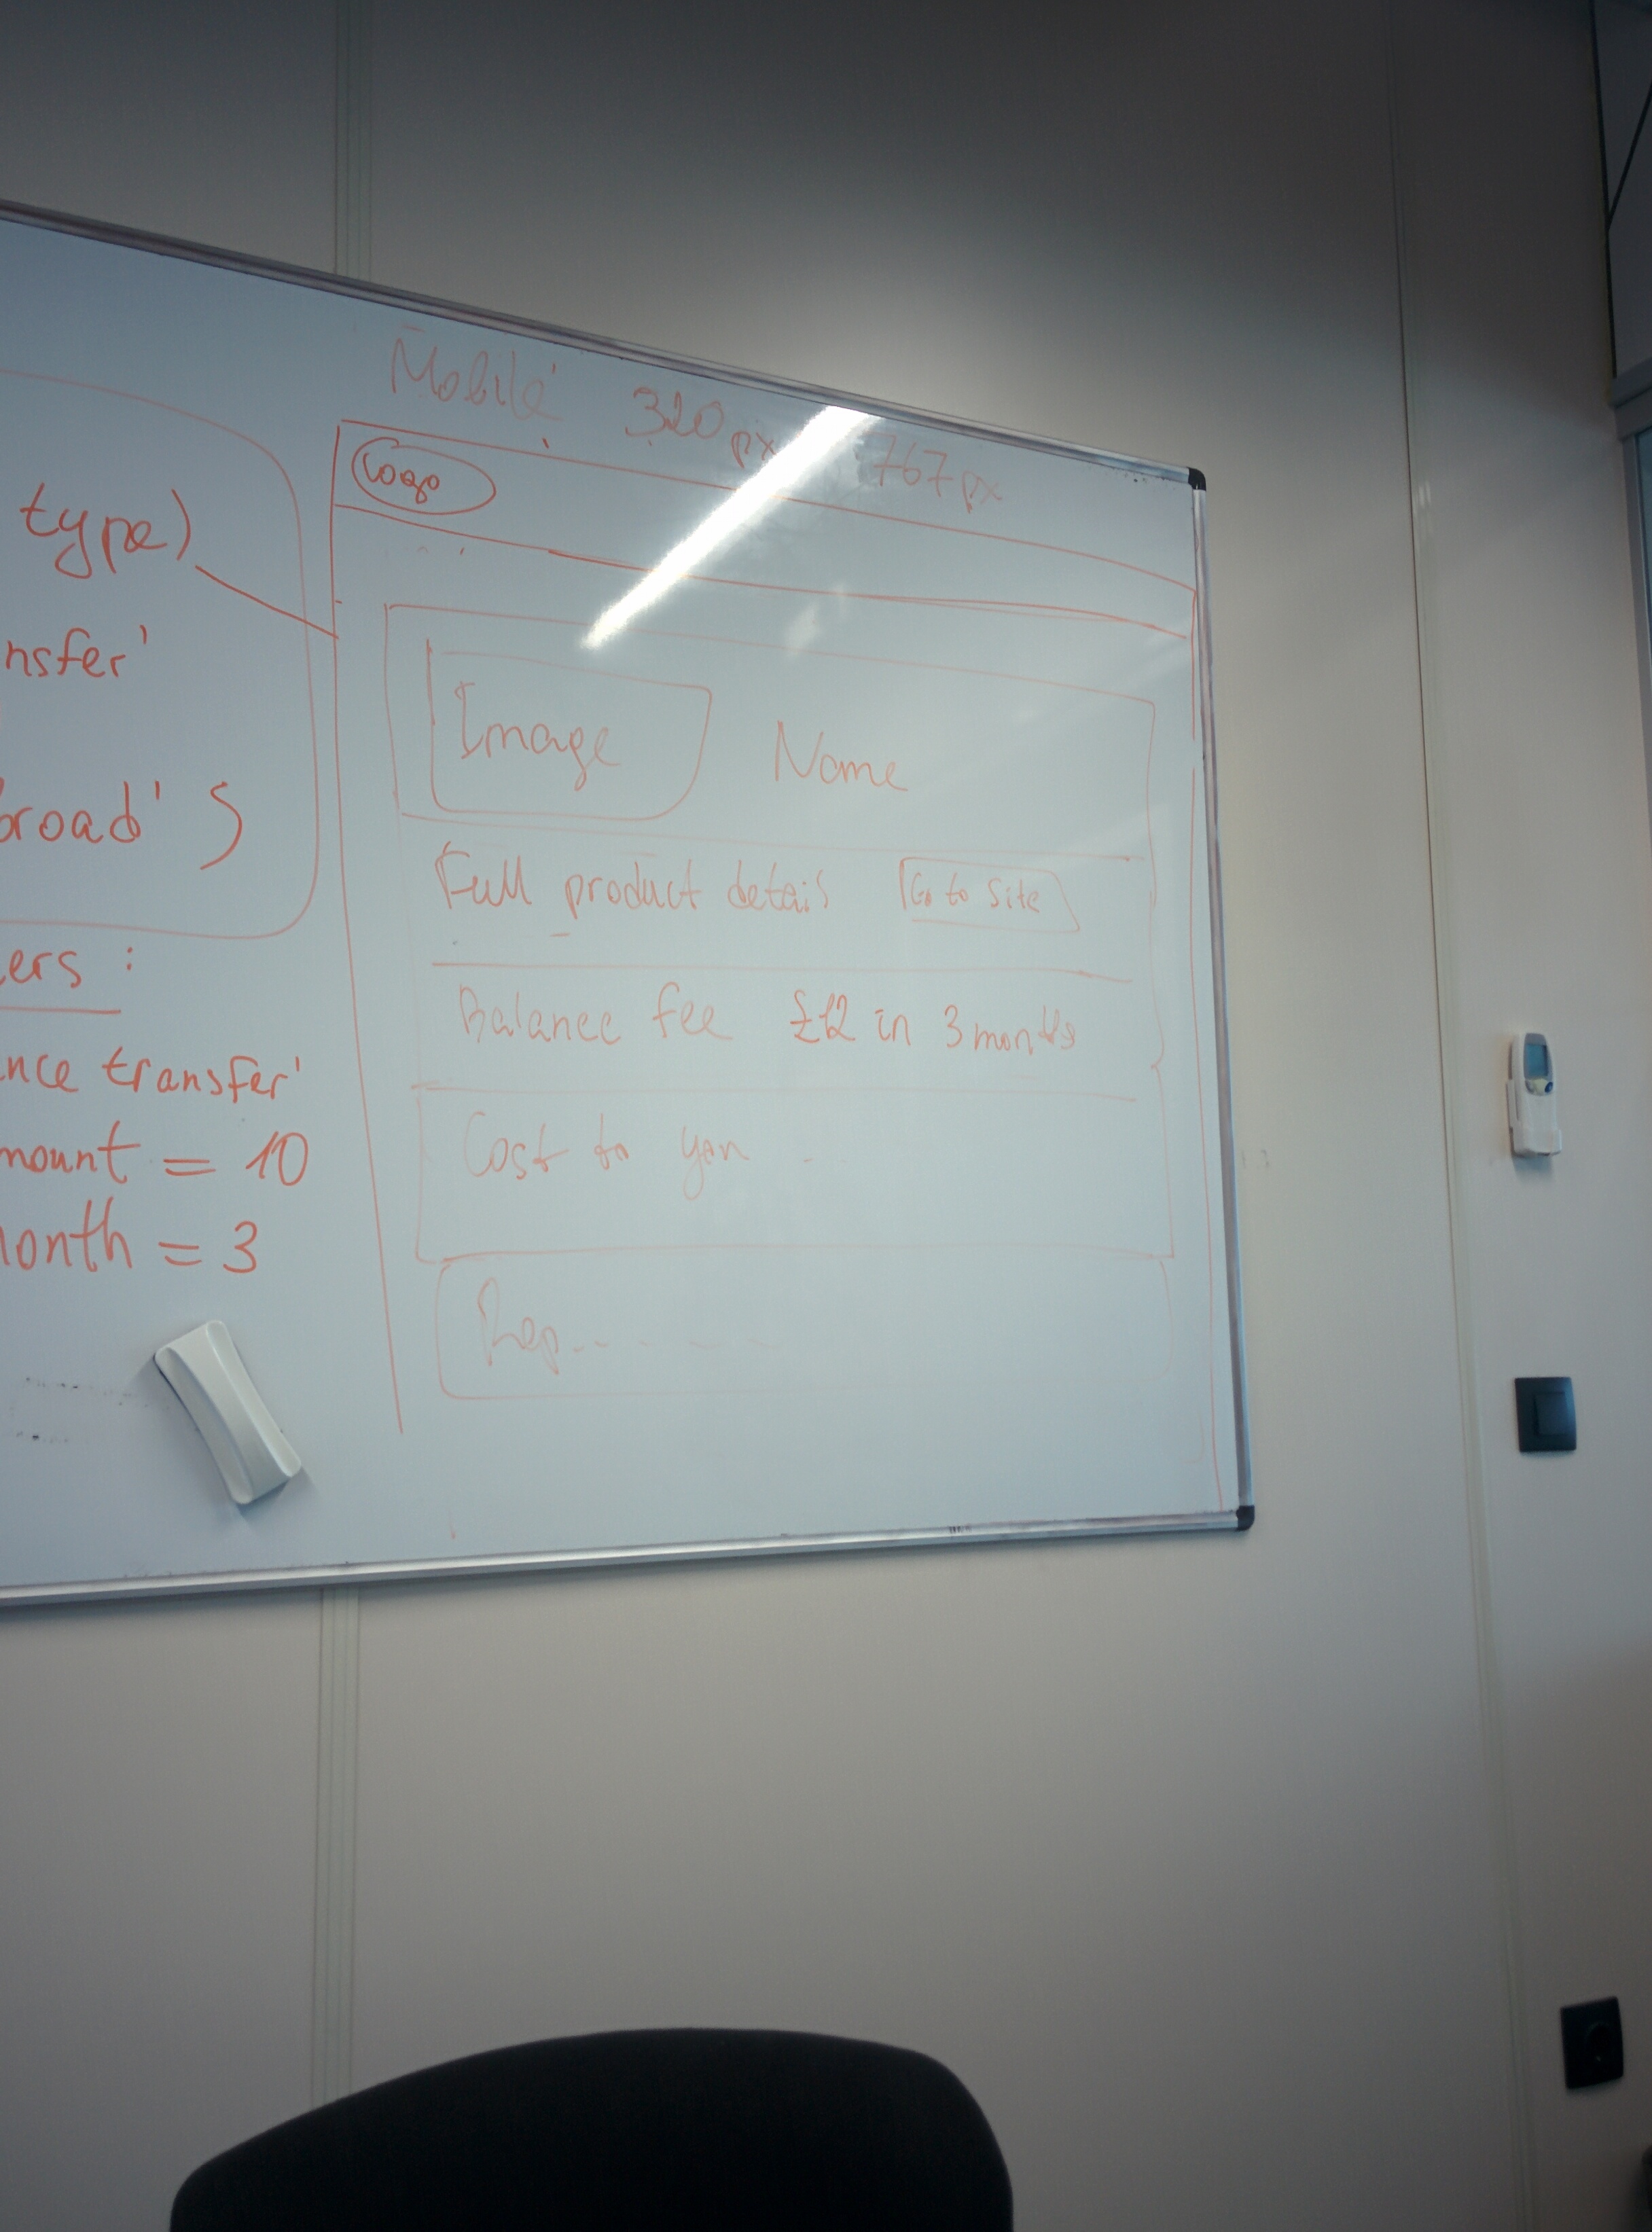 type)
nsfer'
broad'
ers :
nce transfer'
mount = 10
onth = 3
Mobile 320px 767px
Logo
Image Name
Full product details Go to site
Balance fee £12 in 3 months
Cost to you
Rep.......